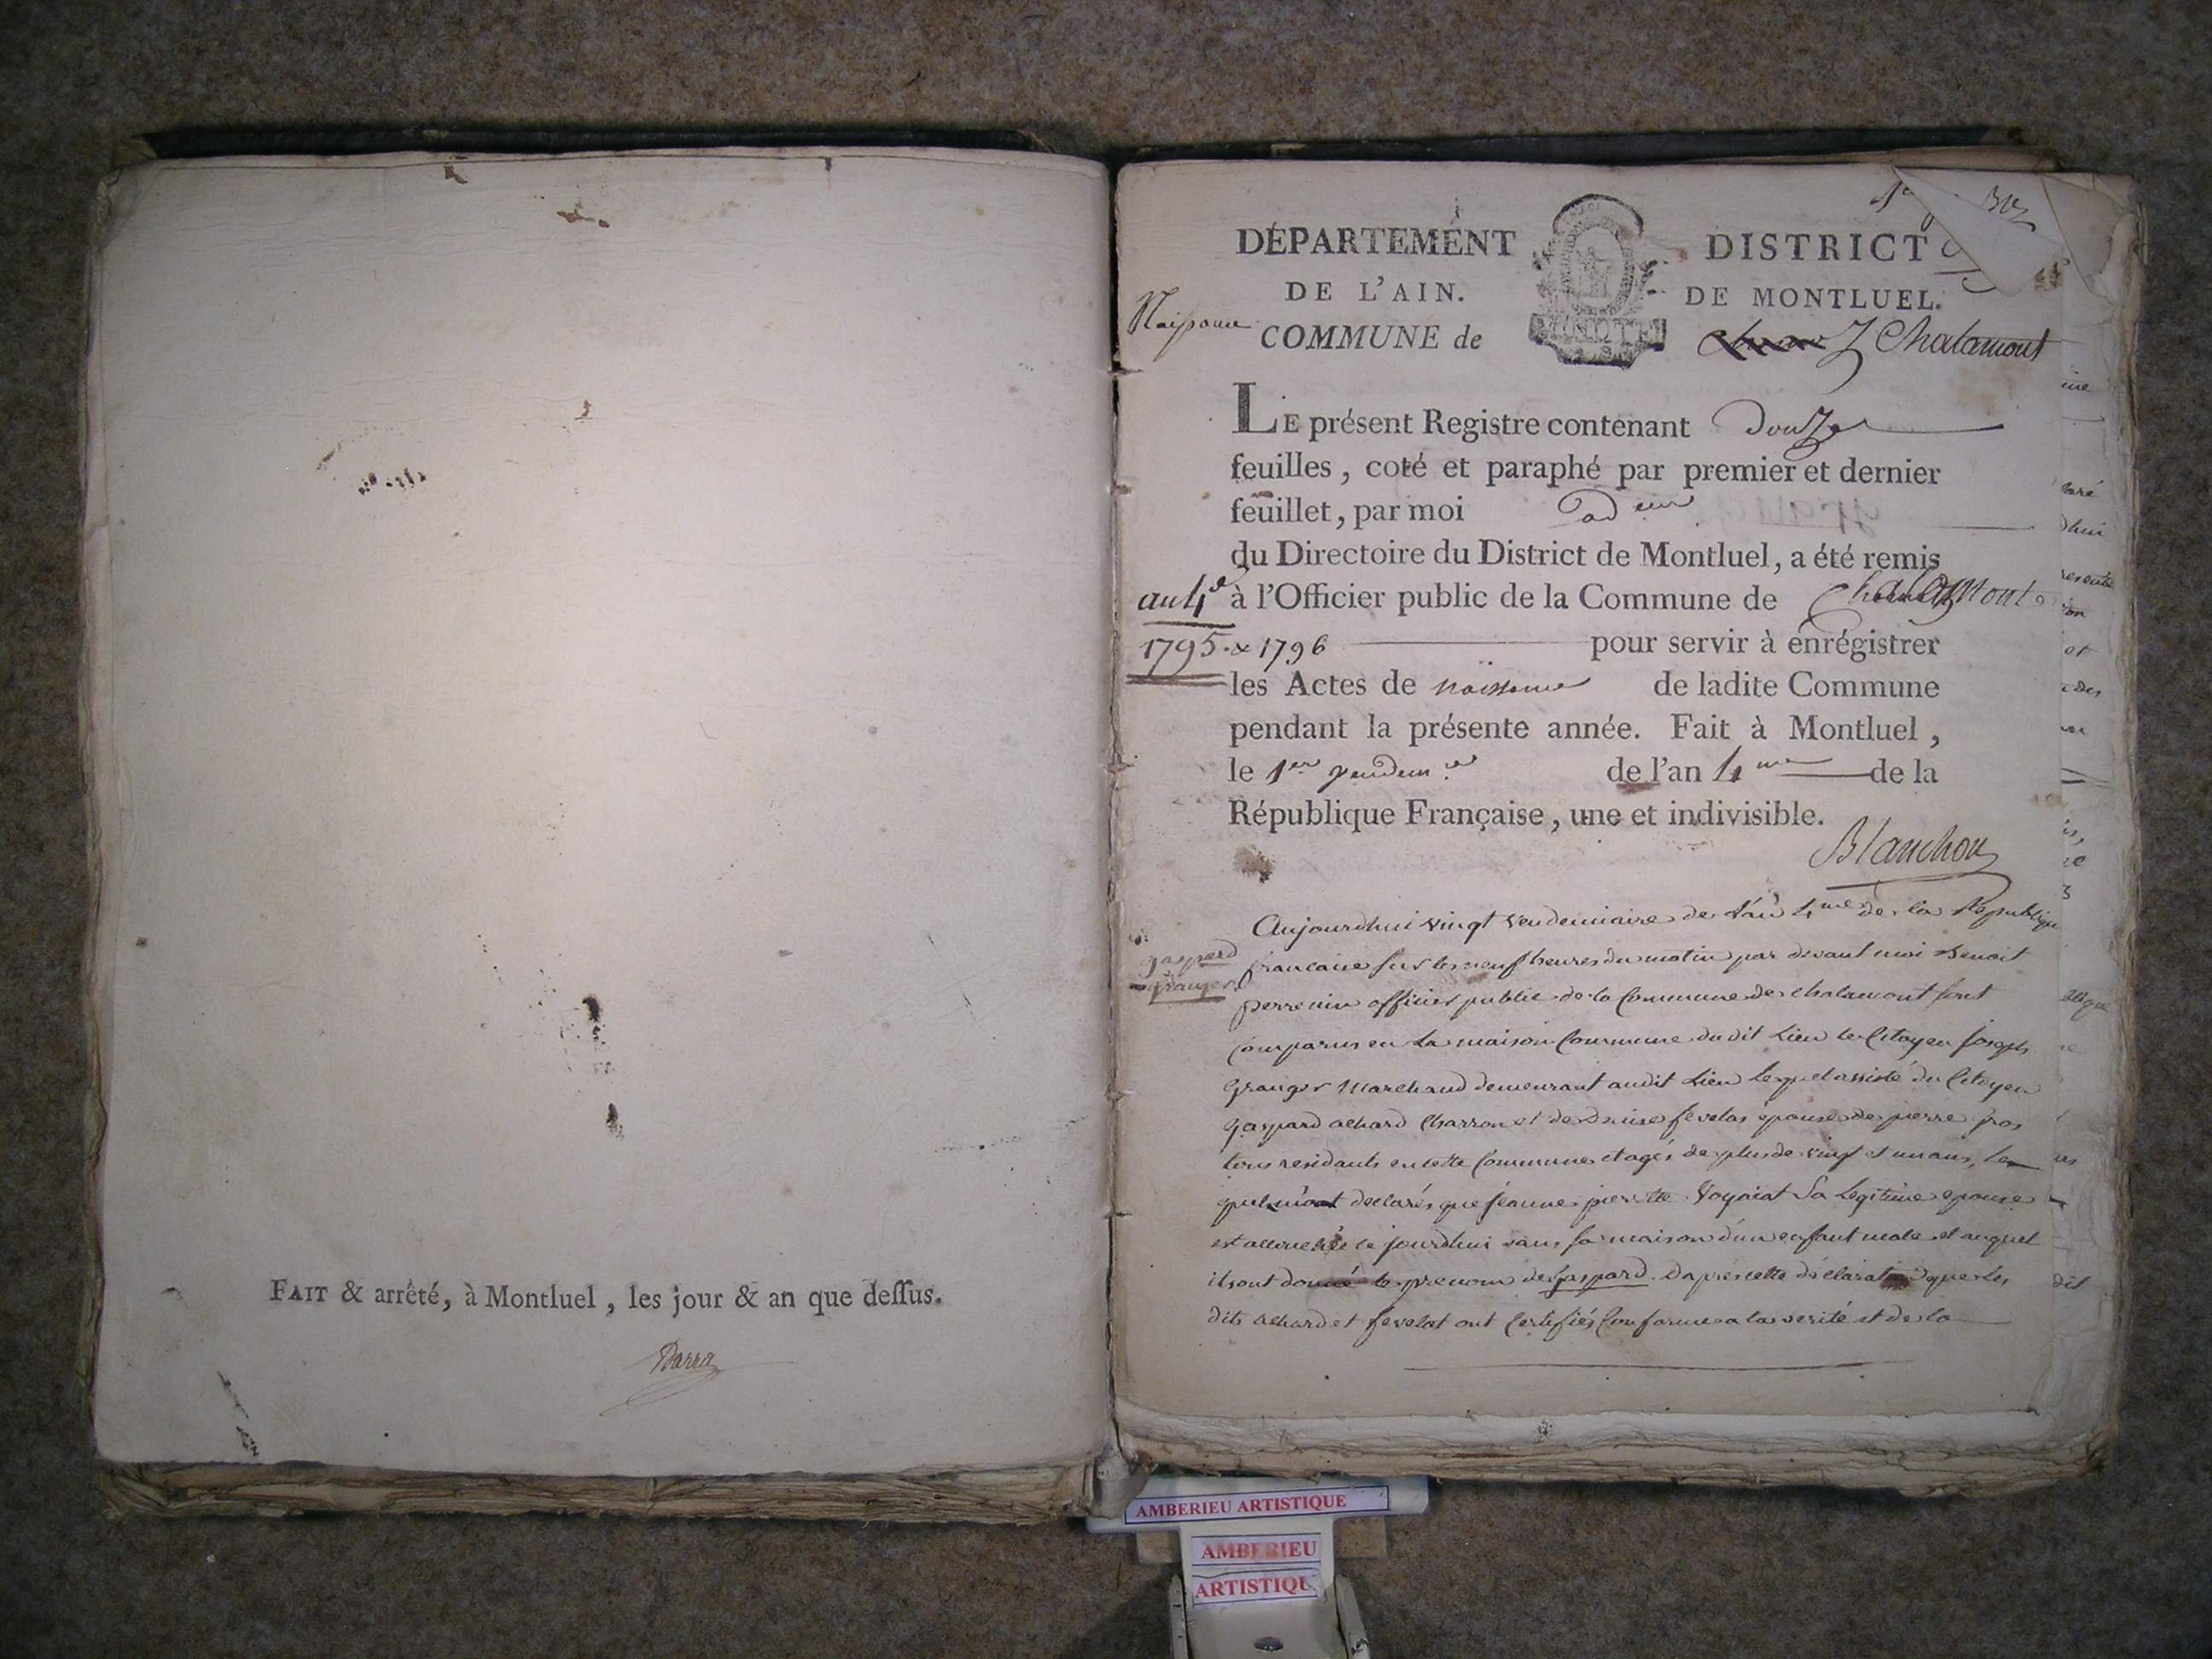 FAIT & arrêté, à Montluel, les jour & an que dessus.
Barra
DÉPARTEMENT
DE L'AIN.
DISTRICT
DE MONTLUEL.
Naissance
COMMUNE de
Chalamont
LE présent Registre contenant Douze
feuilles, coté et paraphé par premier et dernier
feuillet, par moi
du Directoire du District de Montluel, a été remis
an 4e à l'Officier public de la Commune de Chalamont
1795 & 1796 pour servir à enrégistrer
les Actes de naissance de ladite Commune
pendant la présente année. Fait à Montluel,
le 1er vendem.re de l'an 4me de la
République Française, une et indivisible.
Blanchon
gaspard
granger
Aujourdhui vingt vendemiaire de l'an 4me de la Republique
francaise sur les neuf heures du matin par devant moi Benoit
perrenin officier public de la Commune de chalamont sont
comparus en la maison Commune du dit Lieu le Citoyen joseph
granger Marchand demeurant audit Lieu lequel assisté du Citoyen
gaspard achard Charron et de Denise fevelas epouse de pierre gros
tous residants en cette Commune et agés de plus de vingt et un ans, les
quels m'ont declarés que jeanne pierrette Sa legitime epouse
est accouchée ce jourdhui dans sa maison d'un enfant male et auquel
ils ont donné le prenom de gaspard. D'apres cette déclaration que les
dits achard et fevelat ont Certifiés Conforme a la verité et de la
AMBERIEU ARTISTIQUE
AMBERIEU
ARTISTIQUE